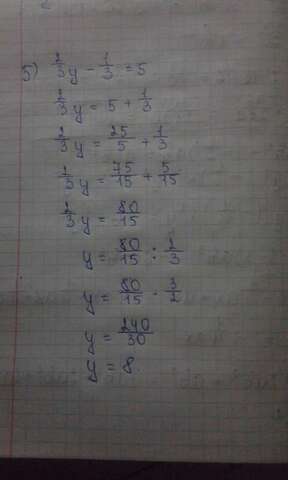 5) 2/3 y - 1/3 = 5
2/3 y = 5 + 1/3
2/3 y = 25/5 + 1/3
2/3 y = 75/15 + 5/15
2/3 y = 80/15
y = 80/15 : 2/3
y = 80/15 · 3/2
y = 240/30
y = 8.